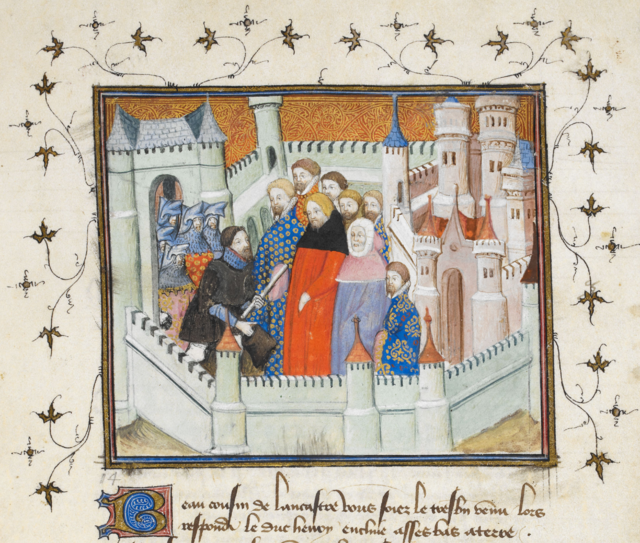 Beau cousin de lancastre vous soiez le tresbn venu lors
respondi le duc henry encline asses bas a terre .